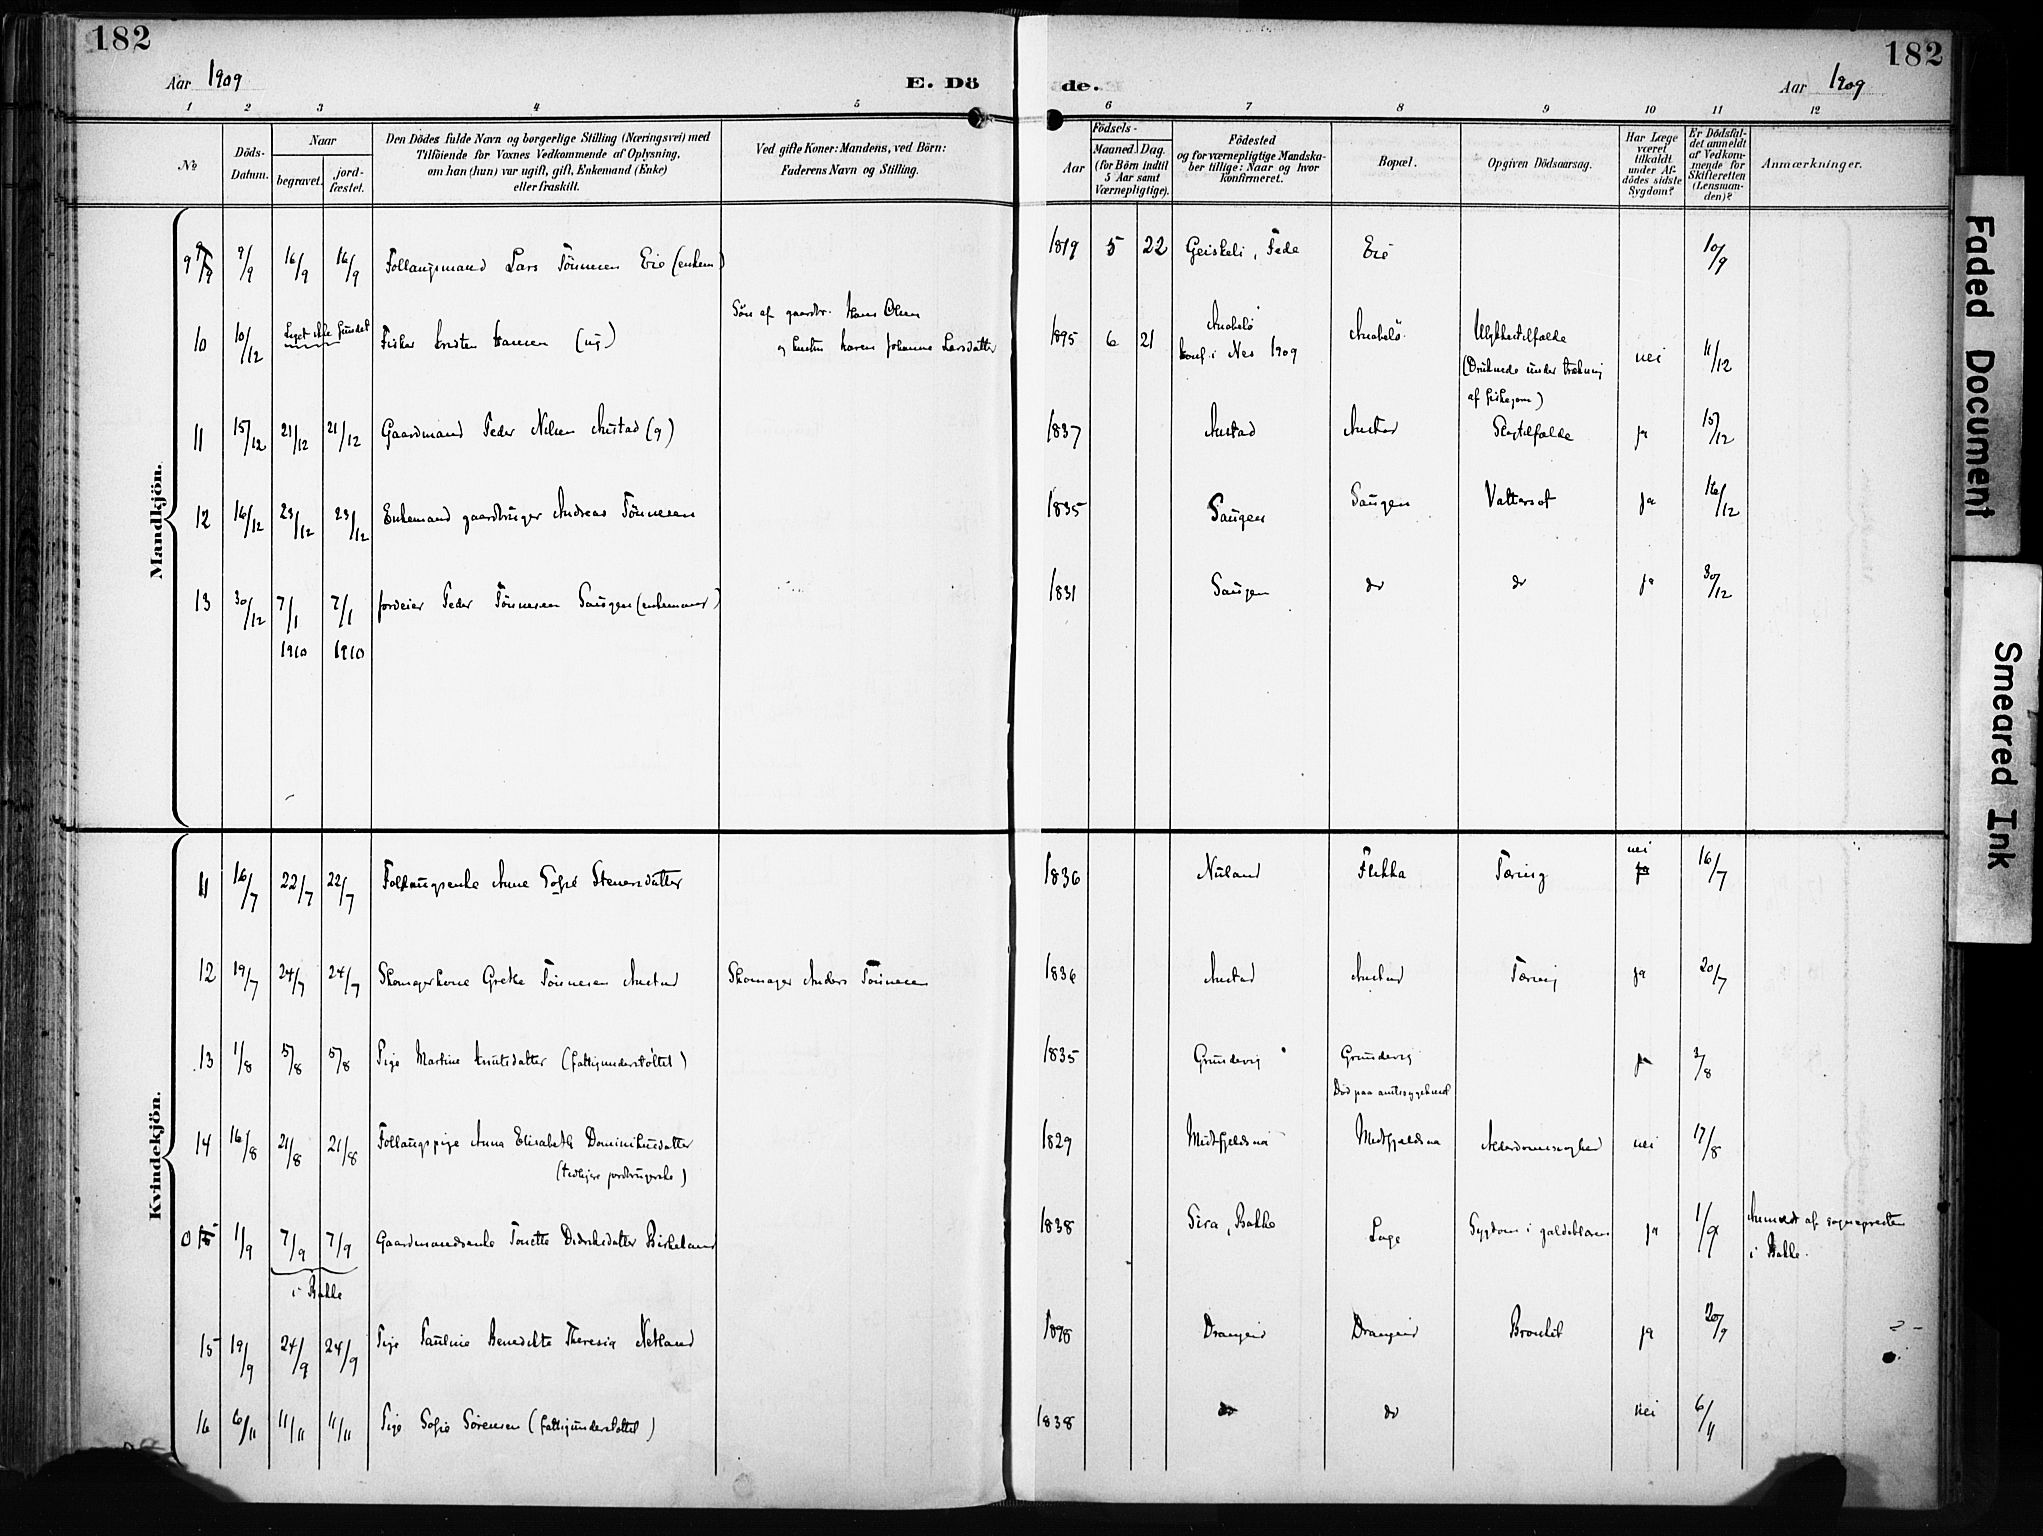 182
Aar 1909
E. Dö
de.
Aar 1909
182
1 2 3 4 5 6 7 8 9 10 11 12
No
Döds-Datum.
Naar
begravet.
jord-fæstet.
Den Dödes fulde Navn og borgerlige Stilling (Næringsvei) med
Tilföiende for Voxnes Vedkommende af Oplysning,
om han (hun) var ugift, gift, Enkemand (Enke)
eller fraskilt.
Ved gifte Koner: Mandens, ved Börn:
Faderens Navn og Stilling.
Födsels-
Aar
Maaned. Dag.
(for Börn indtil
5 Aar samt
Værnepligtige).
Födested
og for værnepligtige Mandska-
ber tillige: Naar og hvor
konfirmeret.
Bopæl.
Opgiven Dödsaarsag.
Har Læge
været
tilkaldt
under Af-
dödes sidste
Sygdom?
Er Dödsfal-
det anmeldt
af Vedkom-
mende for
Skifteretten
(Lensman-
den)?
Anmærkninger.
Mandkjön.
9 9/9 16/9 16/9 Follaugsmand Lars Tönnesen Eie (enkem) 1819 5 22 Geiskeli, Fede Eie 10/9
10 10/12 Liget ikke fundet Fisker Kristen Hansen (ug) Sön af gaardbr. Hans Olsen
og hustru Karen Johanne Larsdatter 1895 6 21 Anabelö
konf. i Nes 1909 Anabelö Ulykkestilfælde
(Druknede under trækning
af fiskegarn) nei 11/12
11 15/12 21/12 21/12 Gaardmand Peder Nilsen Austad (g) 1837 Austad Austad Slagtilfælde ja 15/12
12 16/12 23/12 23/12 Enkemand gaardbruger Andreas Tönnesen 1835 Haugen Haugen Vattersot ja 16/12
13 30/12 7/1 7/1 Jordeier Peder Tönnesen Haugen (enkemand) 1831 Haugen do do ja 30/12
1910 1910
Kvindekjön.
11 16/7 22/7 22/7 Follaugsenke Anne Sofie Stenersdatter 1836 Nuland Flikka Tæring nei 16/7
12 19/7 24/7 24/7 Skomagerkone Grethe Tönnesen Austad Skomager Anders Tönnesen 1836 Austad Austad Tæring ja 20/7
13 1/8 5/8 5/8 Pige Martine Knutsdatter (fattigunderstöttet) 1835 Grundevig Grundevig
Död paa amtssygehuset ja 2/8
14 16/8 21/8 21/8 Follaugspige Anna Elisabeth Dominikusdatter
(tidligere jordbrugerske) 1829 Midtfjeldsnå Midtfjeldsnaa Alderdomssvaghed nei 17/8
0 1/9 7/9 7/9 Gaardmandsenke Tonette Didriksdatter Birkeland 1838 Sira, Bakke Loge Sygdom i galdeblæren ja 1/9 Anmeldt af sognepresten
i Bakke.
i Bakke
15 19/9 24/9 24/9 Pige Pauline Benedikte Theresia Netland 1898 Drangeid Drangeid Bronkit ja 20/9
16 6/11 11/11 11/11 Pige Sofie Sörensen (fattigunderstöttet) 1838 do do nei 6/11
Faded Document
Smeared Ink